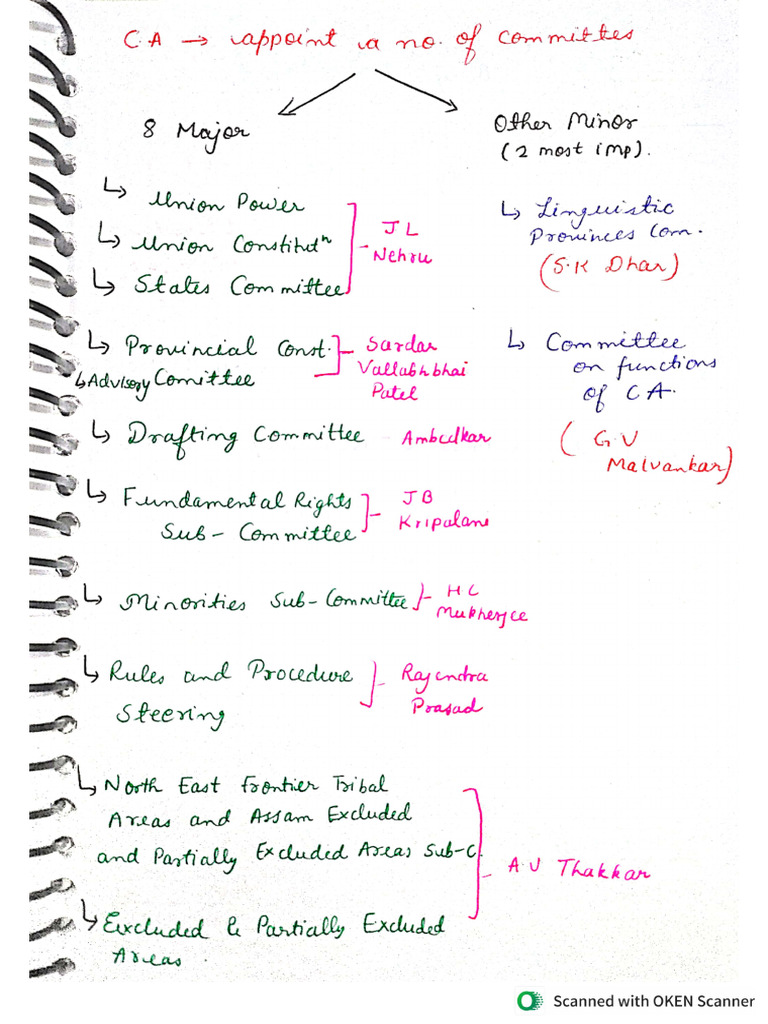 C.A → appoint a no. of committes
8 Major
↳ Union Power
↳ Union Constitutⁿ
↳ States Committee
JL
Nehru
↳ Provincial Const.
↳ Advisory Comittee
Sardar
Vallabhbhai
Patel
↳ Drafting Committee
Ambedkar
↳ Fundamental Rights
Sub-Committee
JB
Kripalani
↳ Minorities Sub-Committee
HC
Mukherjee
↳ Rules and Procedure
Steering
Rajendra
Prasad
↳ North East Frontier Tribal
Areas and Assam Excluded
and Partially Excluded Areas Sub-C.
↳ Excluded & Partially Excluded
Areas
A.V Thakkar
Other Minor
(2 most imp).
↳ Linguistic
Provinces Com.
(S.K Dhar)
↳ Committee
on functions
of C A.
(G.V
Malvankar)
Scanned with OKEN Scanner